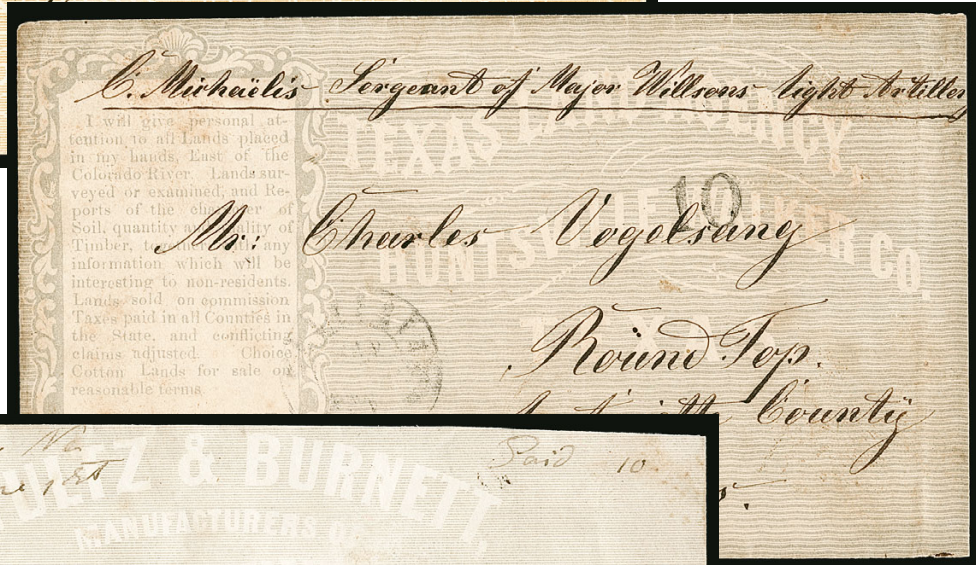 C. Michaëlis Sergeant of Major Willsons light Artillery
TEXAS LAND AGENCY,
I will give personal at-
tention to all Lands placed
in my hands, East of the
Colorado River. Lands sur-
veyed or examined, and Re-
ports of the character of
Soil, quantity and quality of
Timber, together with any
information which will be
interesting to non-residents.
Lands sold on commission
Taxes paid in all Counties in
the State, and conflicting
claims adjusted. Choice
Cotton Lands for sale on
reasonable terms
10
HUNTSVILLE WALKER CO.
Mr: Charles Vogelsang
TEXAS
Roünd Top.
County
No
Paid 10
ULTZ & BURNETT,
MANUFACTURERS OF